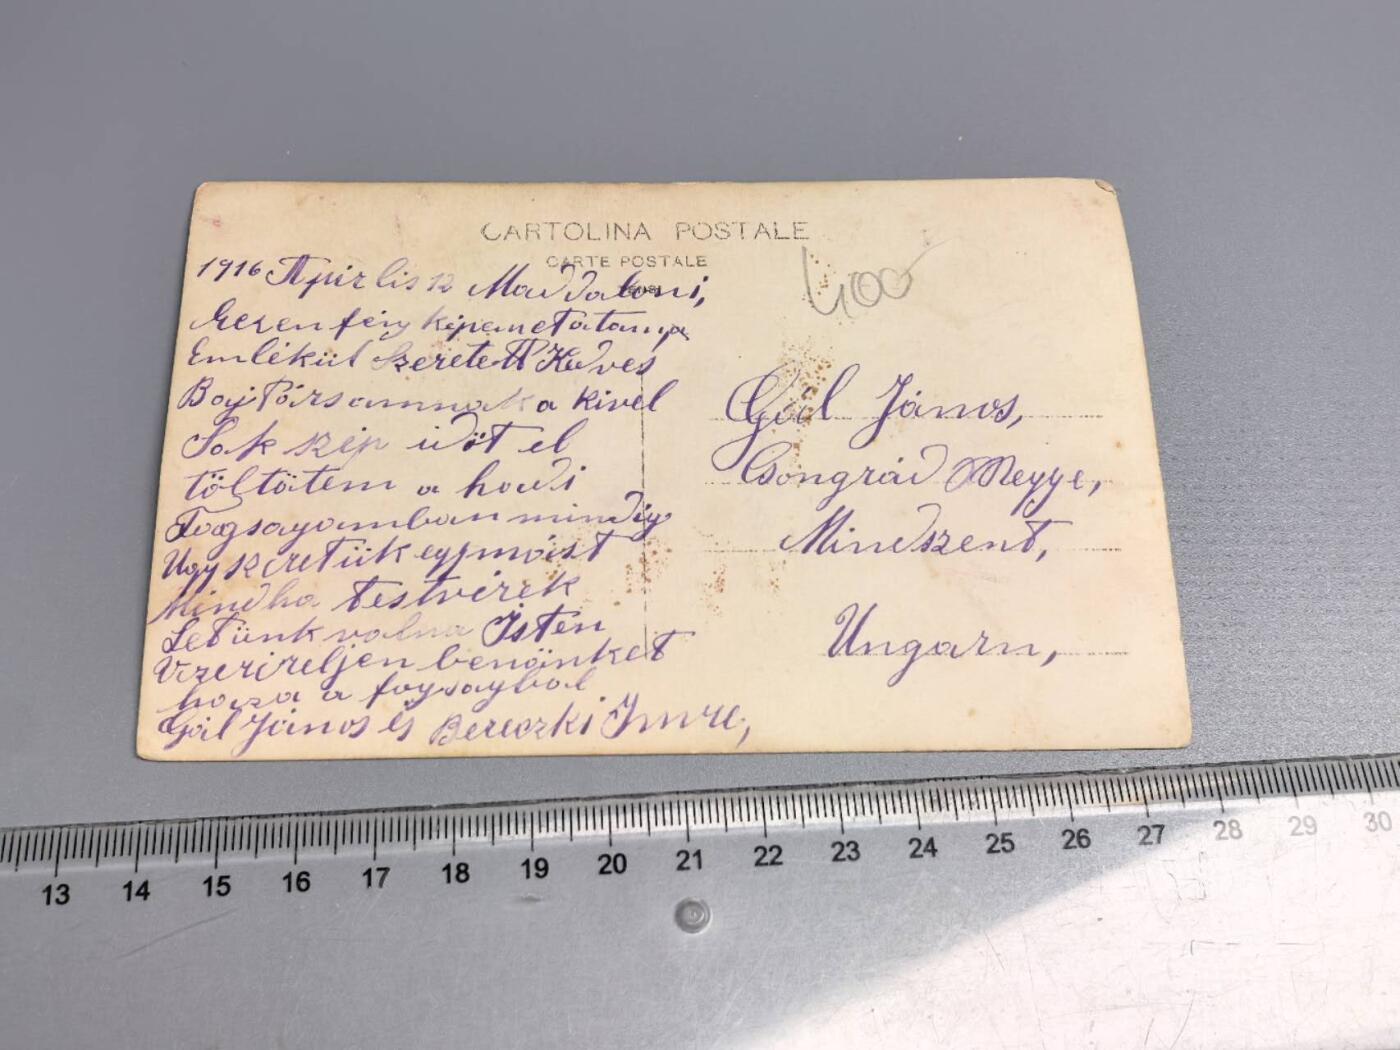 CARTOLINA POSTALE
CARTE POSTALE
1916 Apirlis 12 Maddaloni,
Ezen fény képemet átanya
Emlékül Szeretett Kedves
Baj Társamnak a kivel
Sok szép időt el
töltötem a hadi
Fogsagamban mindig
Ugy szeretük egymást
Mindha testvérek
Letünk valna Isten
Vezérireljen benönket
haza a fogsagbol
Gál János és Bereczki Imre,
400
Gál János,
Csongrád Megye,
Mindszent,
Ungarn,
13 14 15 16 17 18 19 20 21 22 23 24 25 26 27 28 29 30